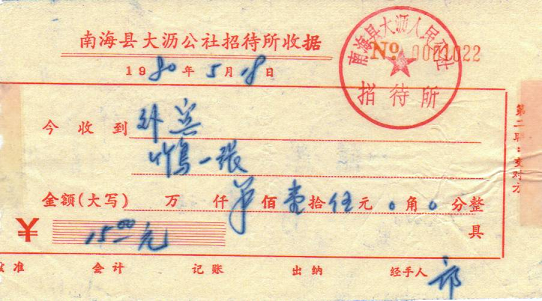 南海县大沥公社招待所收据
No 0001022
南海县大沥人民公社
招待所
1980年5月8日
今收到
一张
金额(大写) 万 仟 佰壹拾伍元0角0分整
¥ 15.00元
具
第二联:交对方
准 会计 记账 出纳 经手人